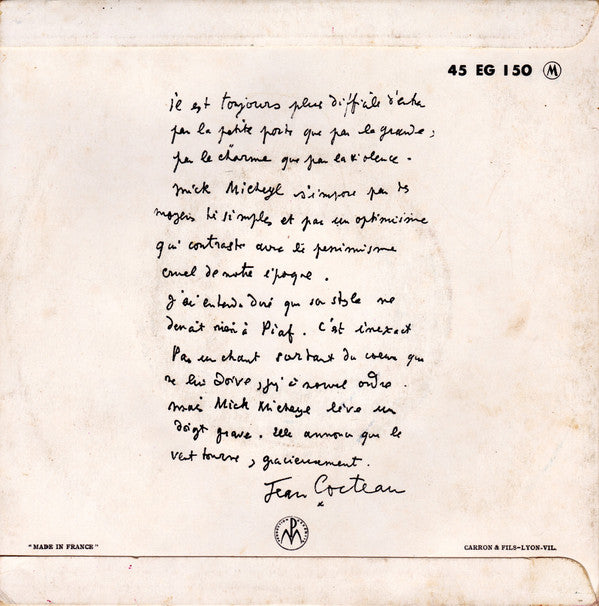 45 EG 150 M
il est toujours plus difficile d'entrer
par la petite porte que par la grande,
par le charme que par la violence.
Mick Micheyl s'impose par des
moyens si simples et par un optimisme
qui contraste avec le pessimisme
cruel de notre époque.
J'ai entendu dire que son style ne
devait rien à Piaf. C'est inexact
Pas un chant sortant du coeur qui
ne lui doive, jusqu'à nouvel ordre.
mais Mick Micheyl lève un
doigt grave. Elle annonce que le
vent tourne, gracieusement.
Jean Cocteau
*
"MADE IN FRANCE"
CARRON & FILS-LYON-VIL.